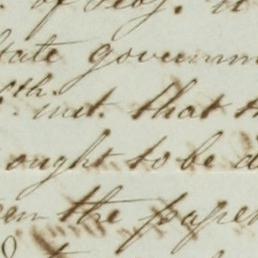 of
state governm
th. inst. that th
ought to be d
en the paper